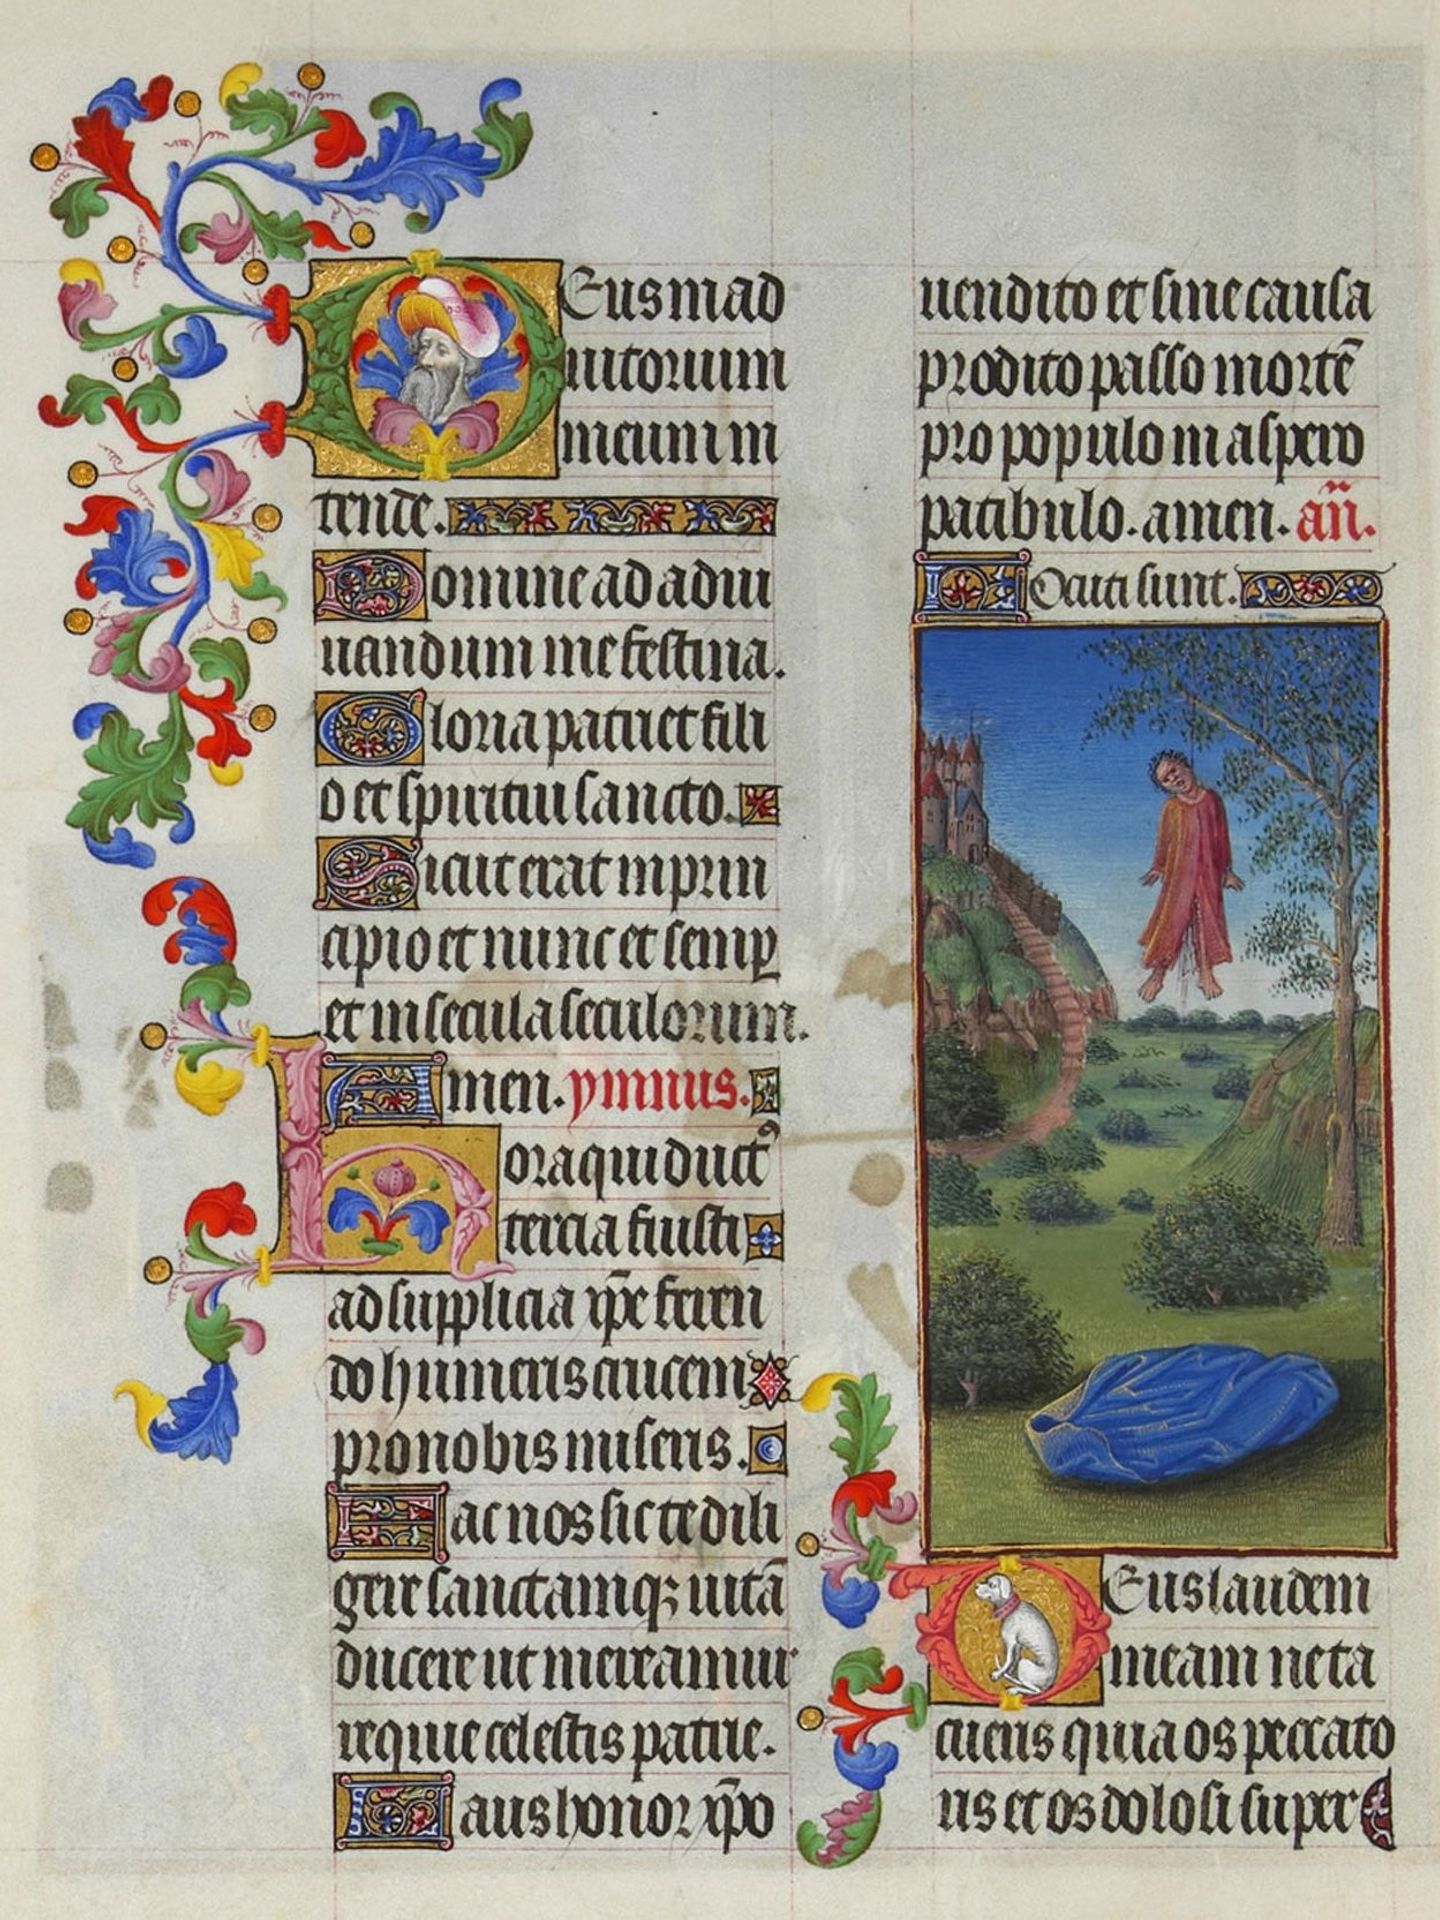 Deus in ad
iutorium
meum in
tende.
Domine ad adiu
uandum me festina.
Gloria patri et fili
o et spiritui sancto.
Sicut erat in prin
cipio et nunc et semꝑ
et in secula seculorum.
Amen. ymnus.
Hora qui ductꝰ
tercia fuisti
ad supplicia xp̄e feren
do humeris crucem
pro nobis miseris.
Fac nos sic te dili
gere sanctamqꝫ uitā
ducere ut mereamur
requie celestis patrie.
Laus honor xp̄o
uendito et sine causa
prodito passo mortē
pro populo in aspero
patibulo. amen. an̄.
Locuti sunt.
Deus laudem
meam ne ta
cueris quia os peccato
ris et os dolosi super